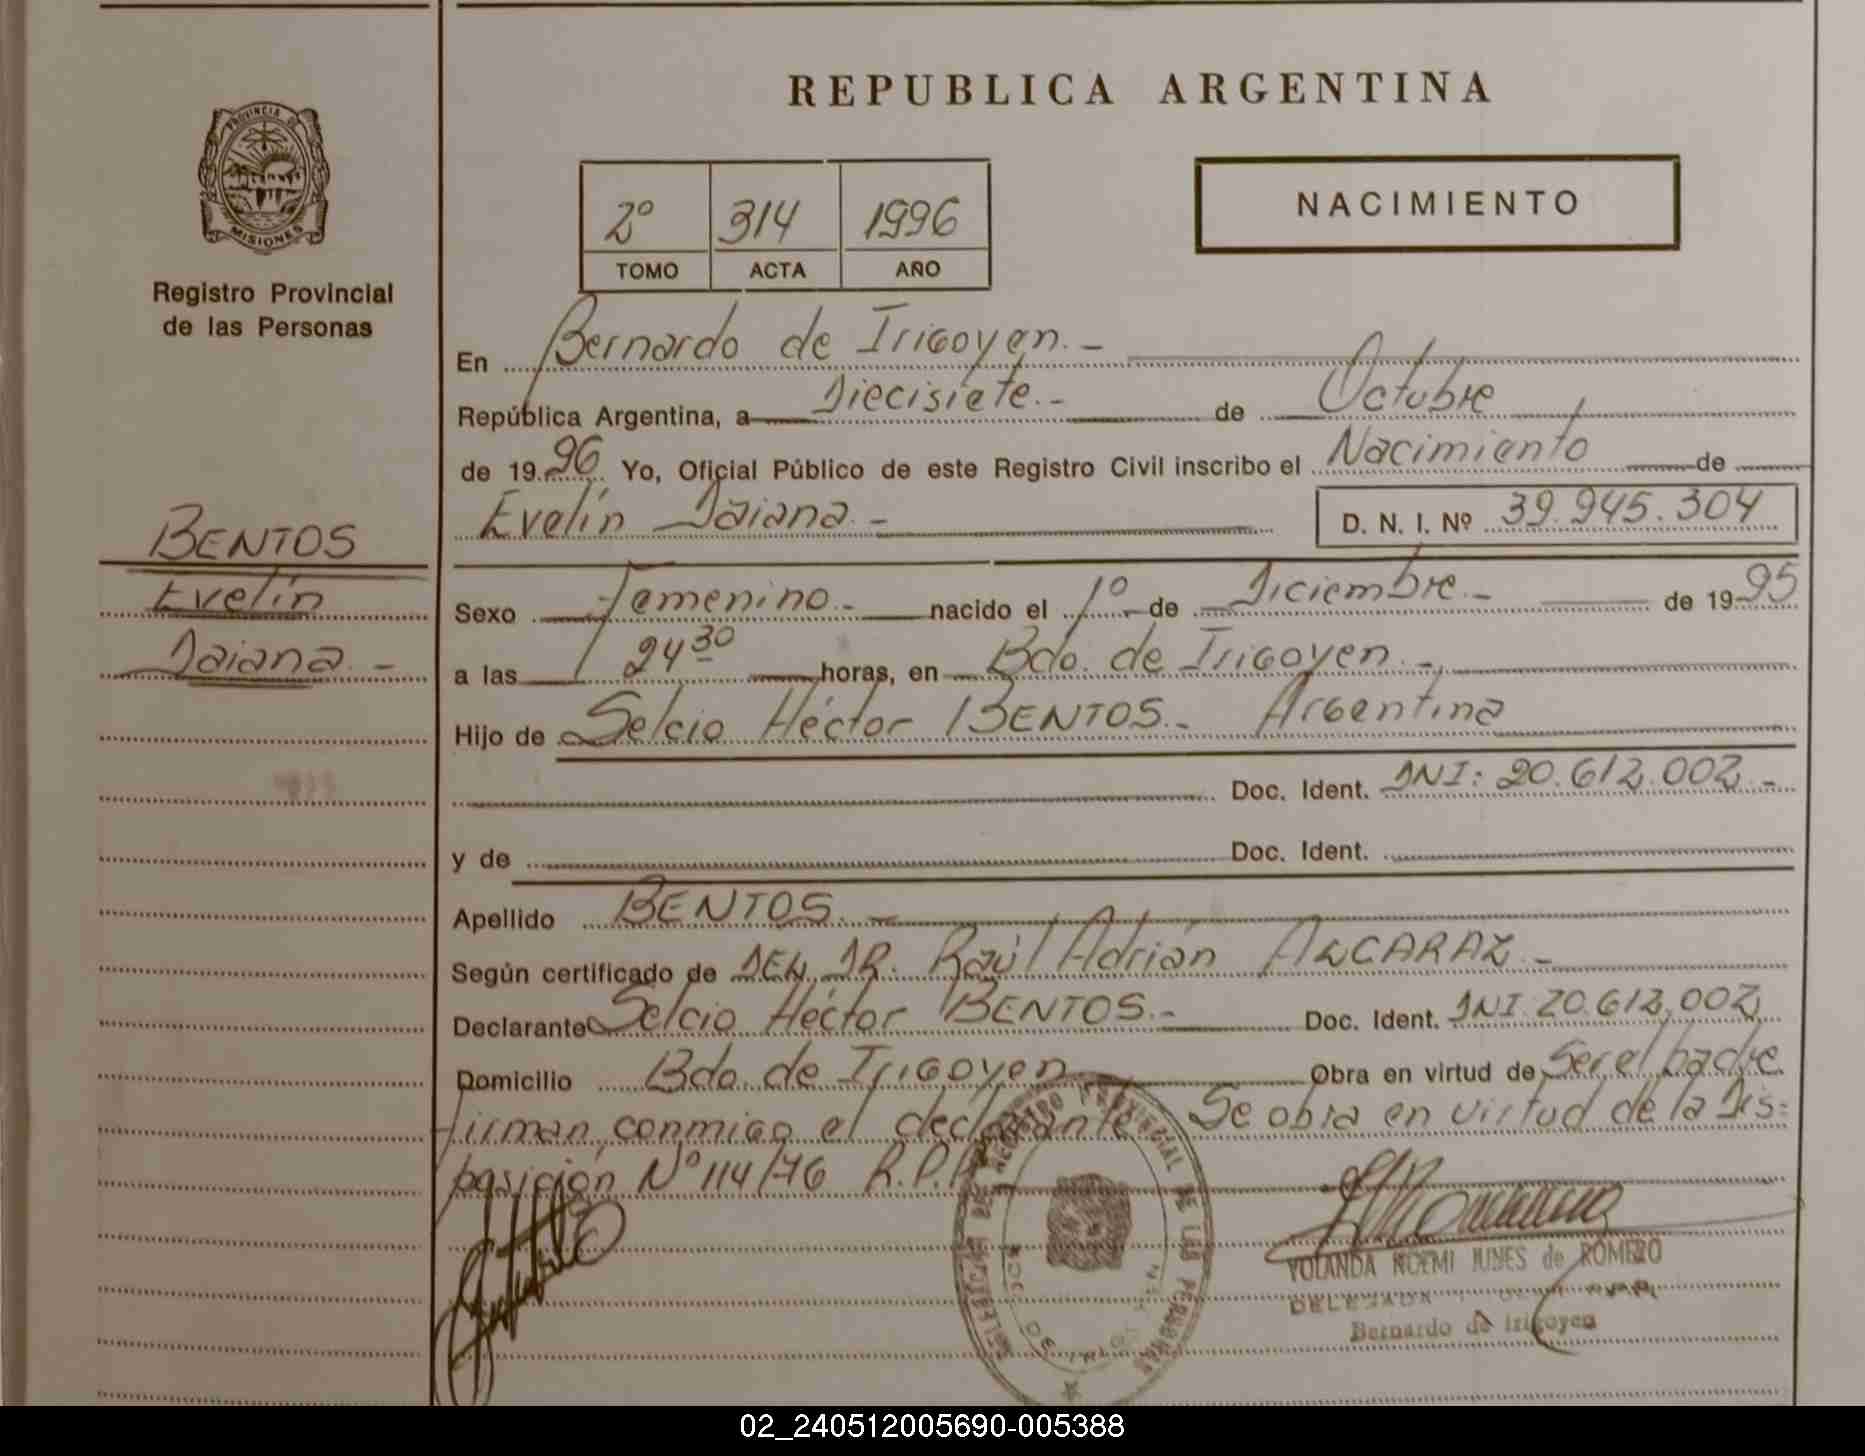 REPUBLICA ARGENTINA
PROVINCIA DE
MISIONES
Registro Provincial
de las Personas
2º 314 1996
TOMO ACTA AÑO
NACIMIENTO
En Bernardo de Irigoyen.-
República Argentina, a Diecisiete.- de Octubre
de 1996 Yo, Oficial Público de este Registro Civil inscribo el Nacimiento de
Evelín Daiana.- D. N. I. Nº 39.945.304
BENTOS
Evelín
Daiana.-
Sexo Femenino.- nacido el 1º de Diciembre.- de 1995
a las 24 30 horas, en Bdo. de Irigoyen.-
Hijo de Selcio Héctor BENTOS.- Argentina
Doc. Ident. DNI: 20.612.002.-
y de Doc. Ident.
Apellido BENTOS.-
Según certificado de DEL DR. Raúl Adrián ALCARAZ.-
Declarante Selcio Héctor BENTOS.- Doc. Ident. DNI 20.612.002
Domicilio Bdo. de Irigoyen Obra en virtud de Ser el padre
firman conmigo el declarante Se obra en virtud de la Dis-
posición Nº 114/76 R.P.P.
REGISTRO PROVINCIAL DE LAS PERSONAS
YOLANDA NOEMI JUNES de ROMERO
DELEGADA
Bernardo de Irigoyen
02_240512005690-005388